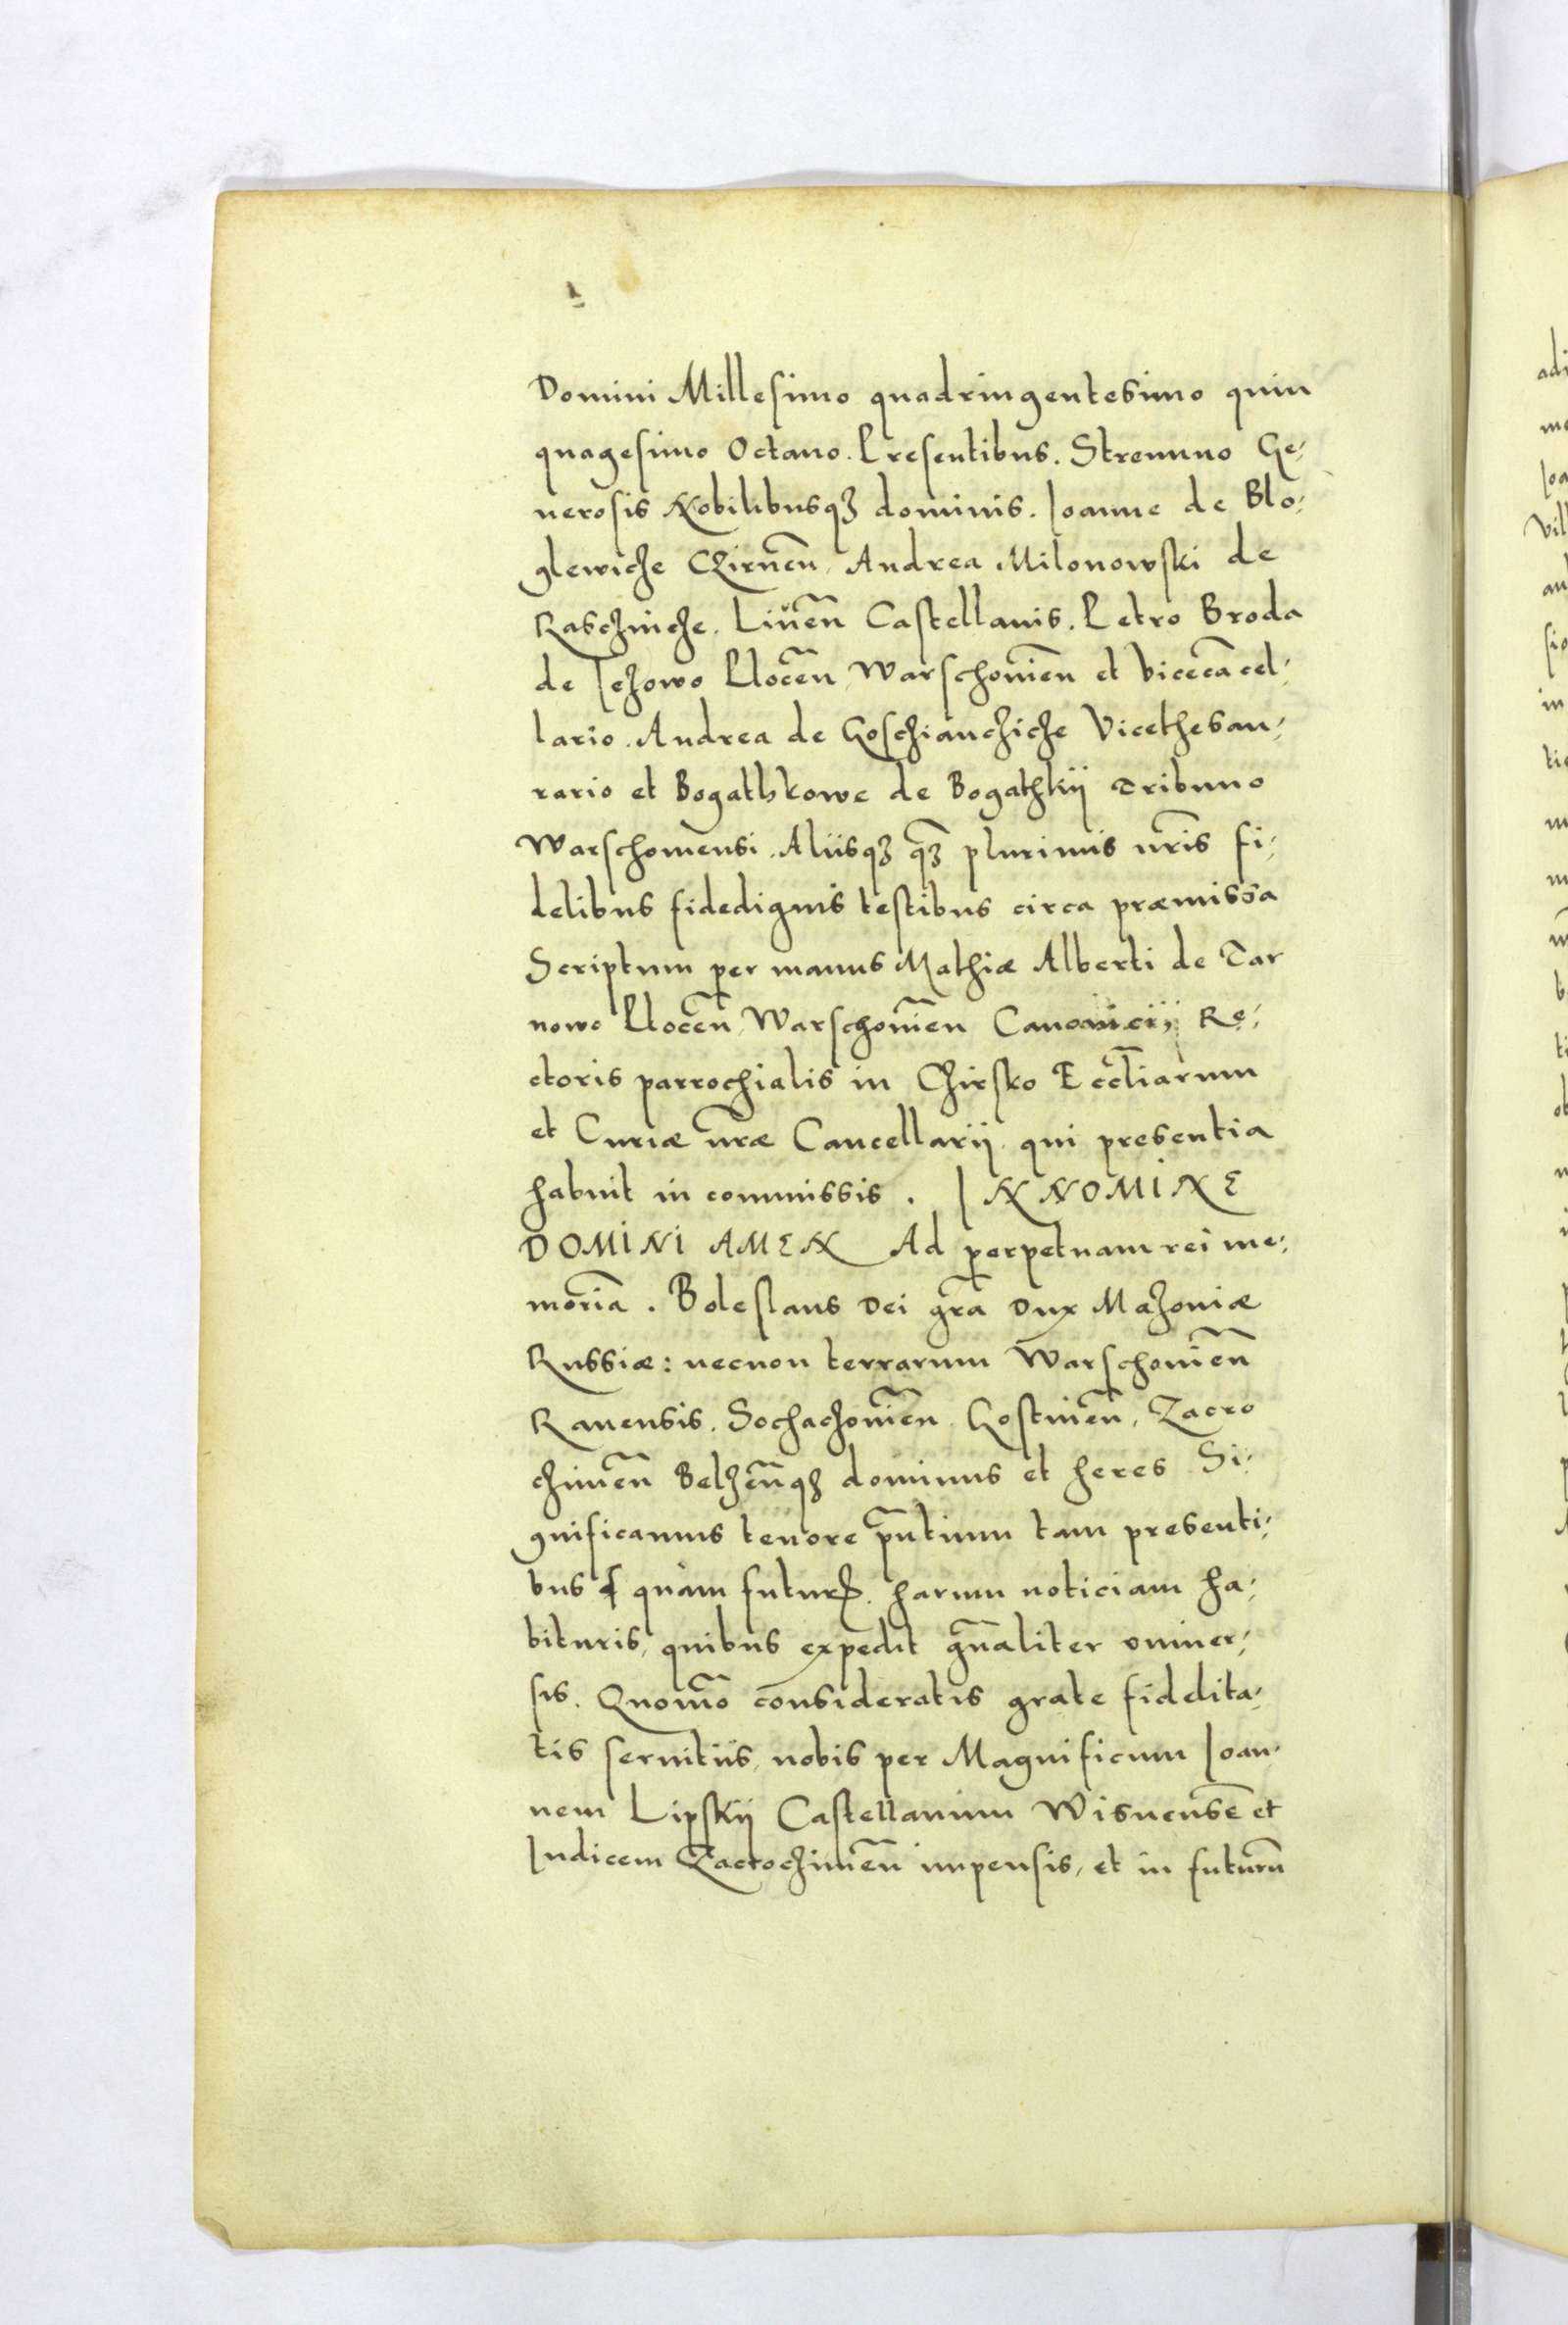 Domini Millesimo quadringentesimo quin
quagesimo Octauo. Presentibus. Strennuo Ge-
nerosis Nobilibusqȝ dominis. Ioanne de Blo-
glewicze Czirnēn, Andrea Milonowski de
Rasczincze. Livēn Castellanis. Petro Broda
de Iezowo Plocēn, Warschouiēn et vicecācel-
lario. Andrea de Gosczianczicze Vicethesau-
rario et Bogathkowe de Bogathkij Tribuno
Warschouiensi. Aliisqȝ qȝ̄ plurimis nr̄is fi-
delibus fidedignis testibus circa præmissa
Scriptum per manus Mathiæ Alberti de Tar
nowo Plocēn, Warschouiēn Canonicij, Re-
ctoris parrochialis in Czirsko Eccl̄iarum
et Curiæ nr̄æ Cancellarij qui presentia
habuit in commissis. IN NOMINE
DOMINI AMEN Ad perpetuam rei me-
moriā. Boleslaus Dei gr̄a Dux Mazoniæ
Russiæ: necnon terrarum Warschouiēn
Rauensis. Sochaczouiēn Gostinēn, Zacro
czimēn Belzēnqȝ dominus et heres Si-
gnificamus tenore pn̄tium tam presenti-
bus quàm futurꝭ. harum noticiam ha-
bituris, quibus expedit gn̄aliter vniuer-
sis. Quomō consideratis grate fidelita-
tis seruitiis, nobis per Magnificum Ioan-
nem Lipskij Castellanum Wisnensē et
Iudicem Zacroczimēn impensis, et in futurū